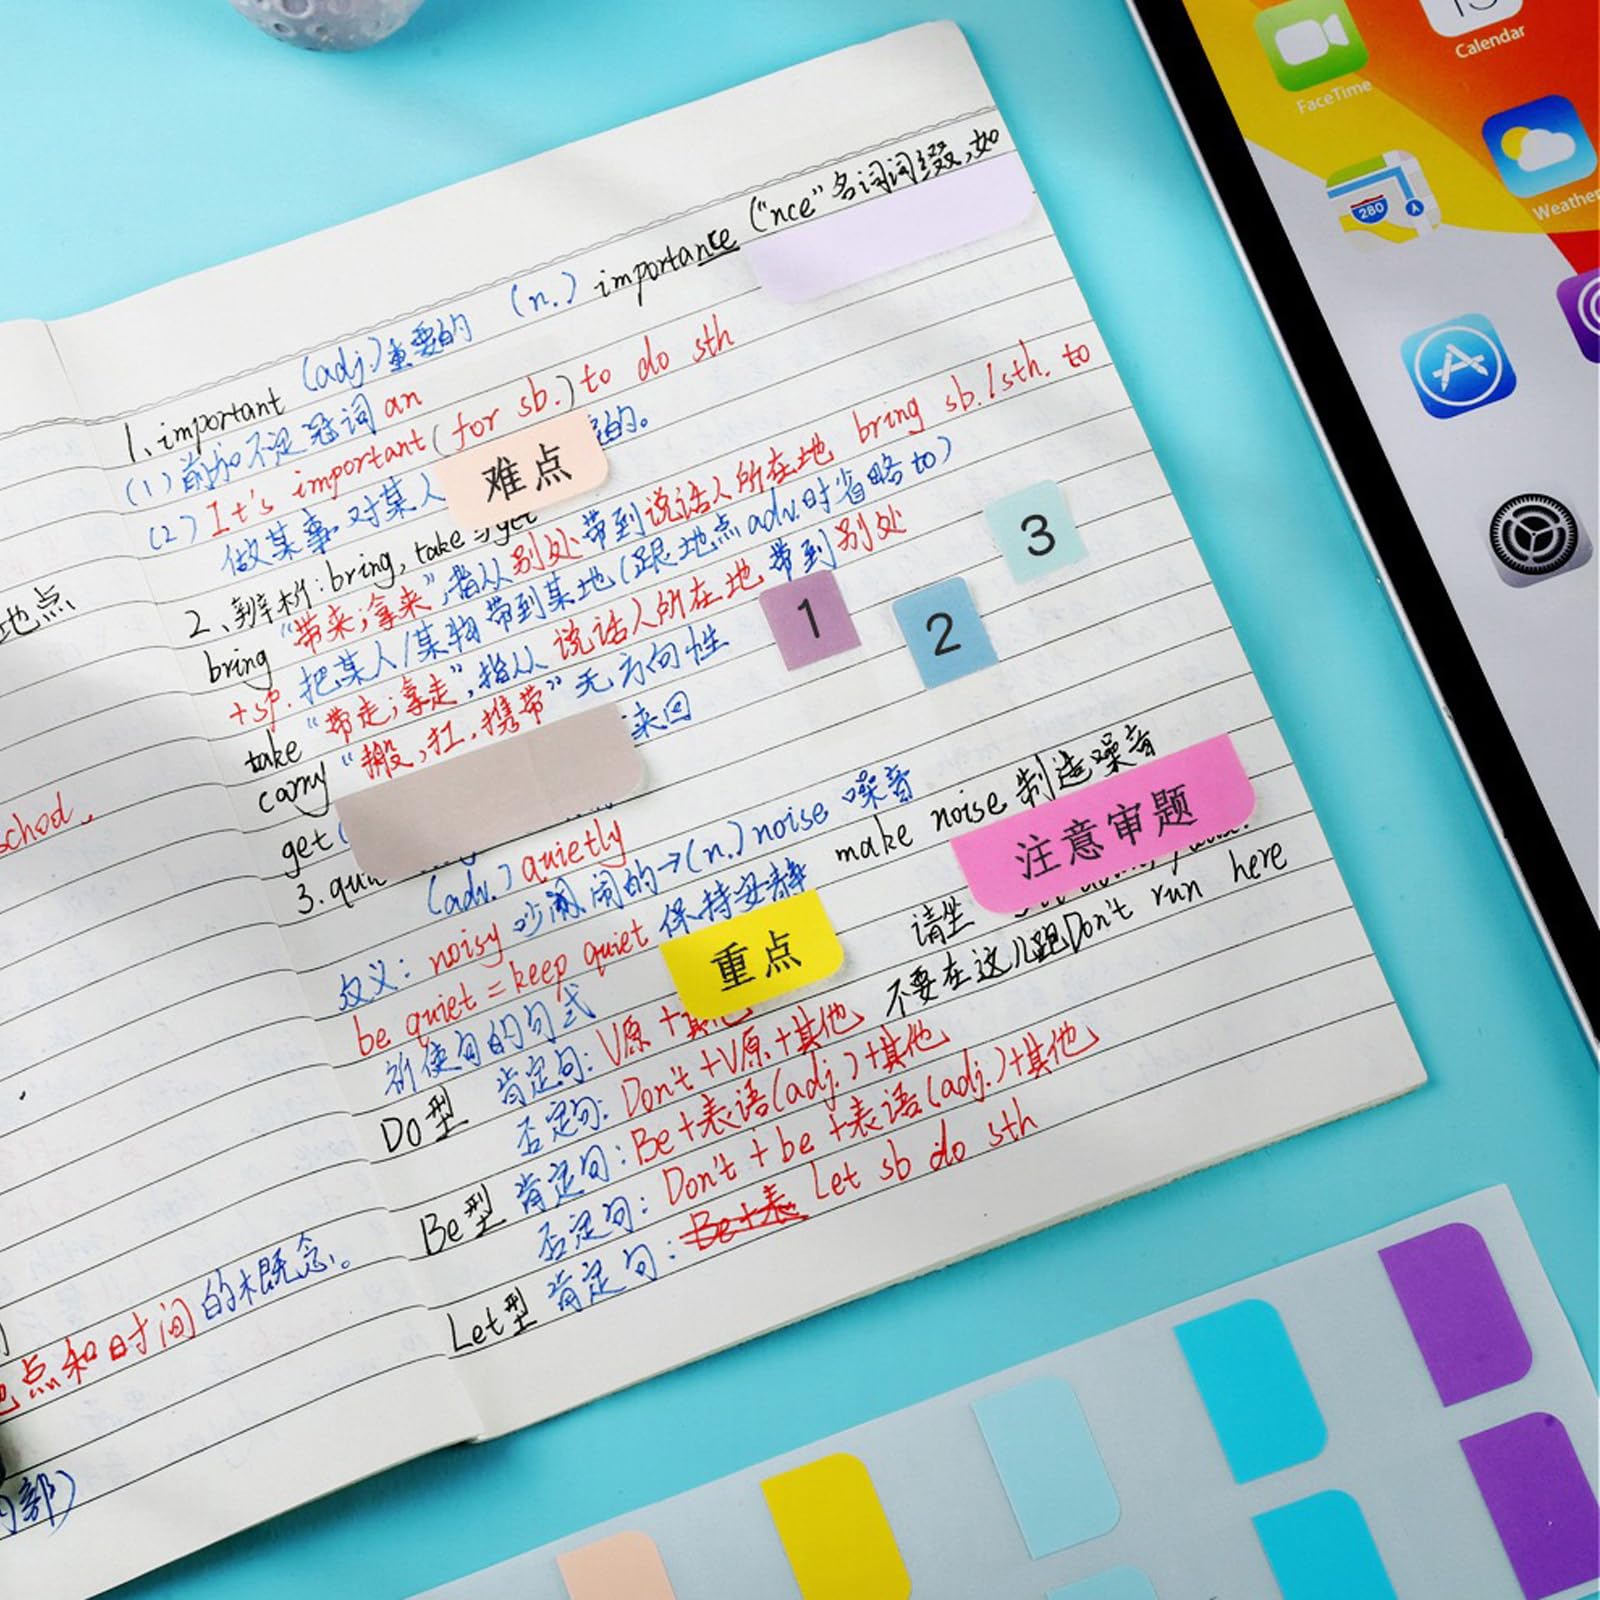 1、important (adj.)重要的 (n.) importance ("nce"名词词缀,如
(1)前加不定冠词 an
(2) It's important (for sb.) to do sth
做某事对某人 的。
难点
2、辨析: bring, take 与 get
bring "带来;拿来",指从别处带到说话人所在地 bring sb./sth. to
+sp. 把某人/某物带到某地(跟地点adv.时省略to)
take "带走;拿走",指从说话人所在地带到别处
carry "搬,扛,携带"无方向性
get ( 来回
3
1
2
3.
(adv.) quietly
反义: noisy 吵闹闹的→(n.) noise 噪音 make noise 制造噪音
be quiet = keep quiet 保持安静
注意审题
重点
祈使句的句式 请坐
Do型 肯定句: V原 +其他 不要在这儿跑Don't run here
否定句: Don't +V原+其他
Be型 肯定句: Be+表语(adj.)+其他
否定句: Don't + be +表语(adj.)+其他
Let型 肯定句: Be+表 Let sb do sth
地点
点和时间的概念。
部)
FaceTime
Calendar
280
Weather